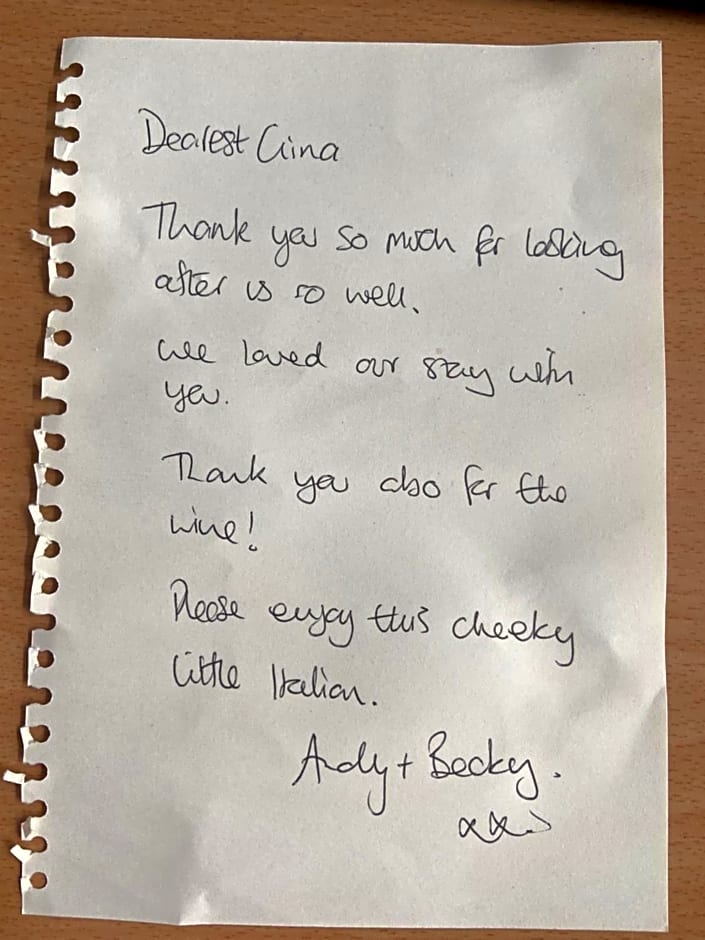 Dearest Gina
Thank you so much for looking
after us so well.
We loved our stay with
you.
Thank you also for the
wine!
Please enjoy this cheeky
little Italian.
Andy + Becky.
xxx